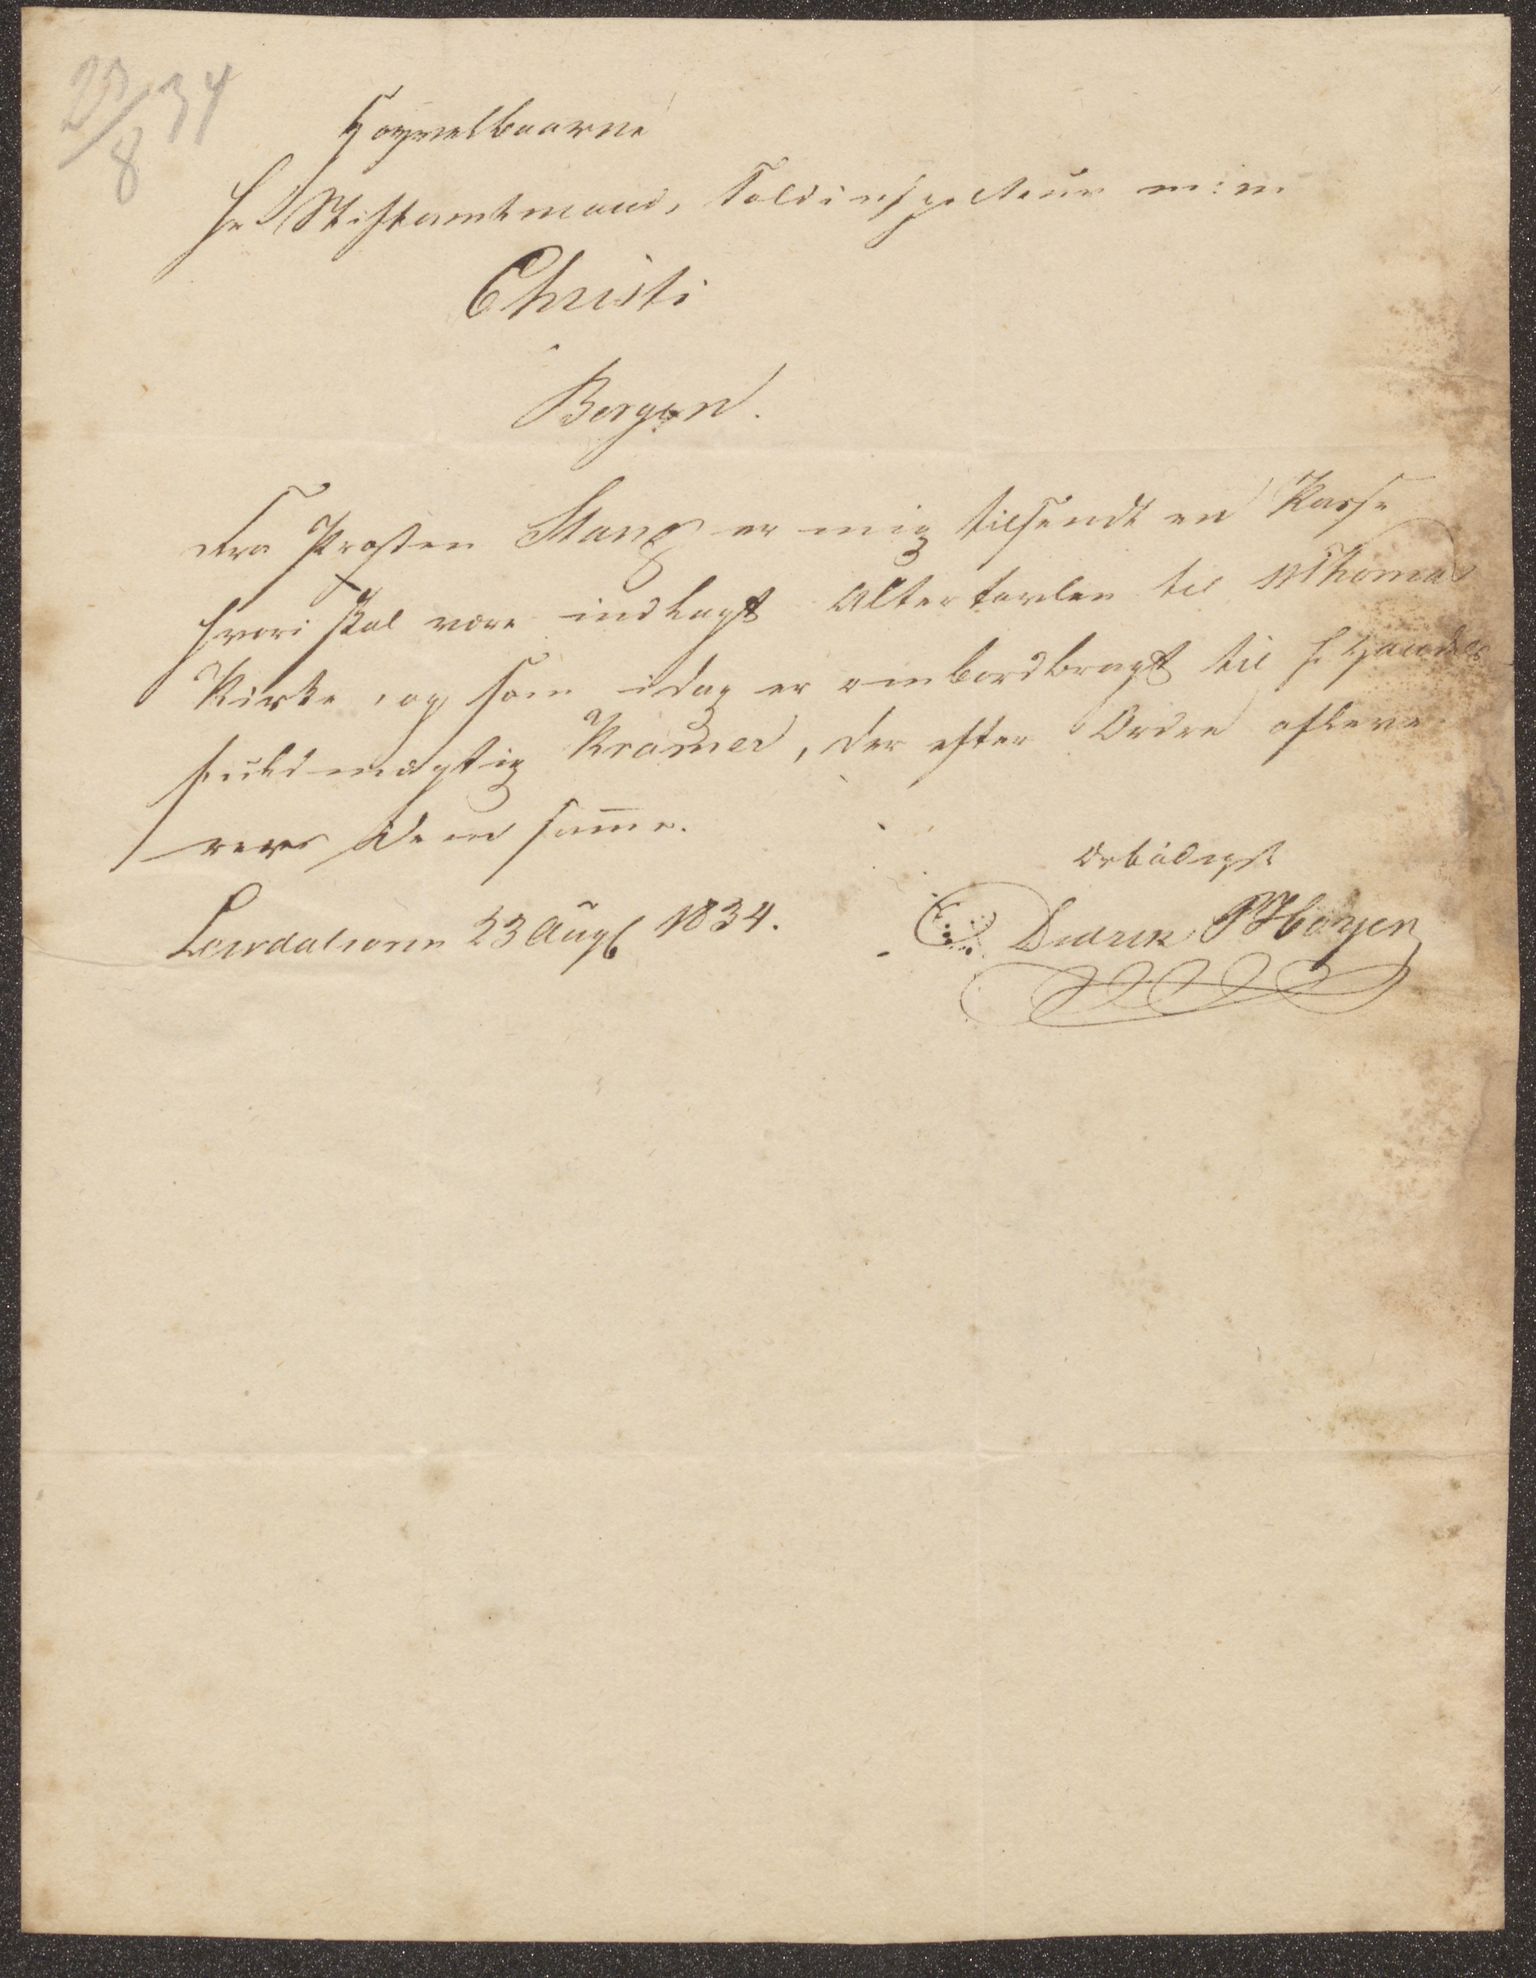 23/8 34
Høyvelbaarne
Hr Stiftamtmand, Toldinspekteur m: m
Christi
Bergen.
Fra Provsten Stang er mig tilsendt en Kasse
hvori skal være indlagt Altertavlen til St Thomas
Kirke, og som idag er ombordbragt til
fuldmægtig Kramer, der efter Ordre afleve
rer Dem samme.
Leirdalsøren 23 Augt 1834.
Ærbødigst
Didrik Høyer